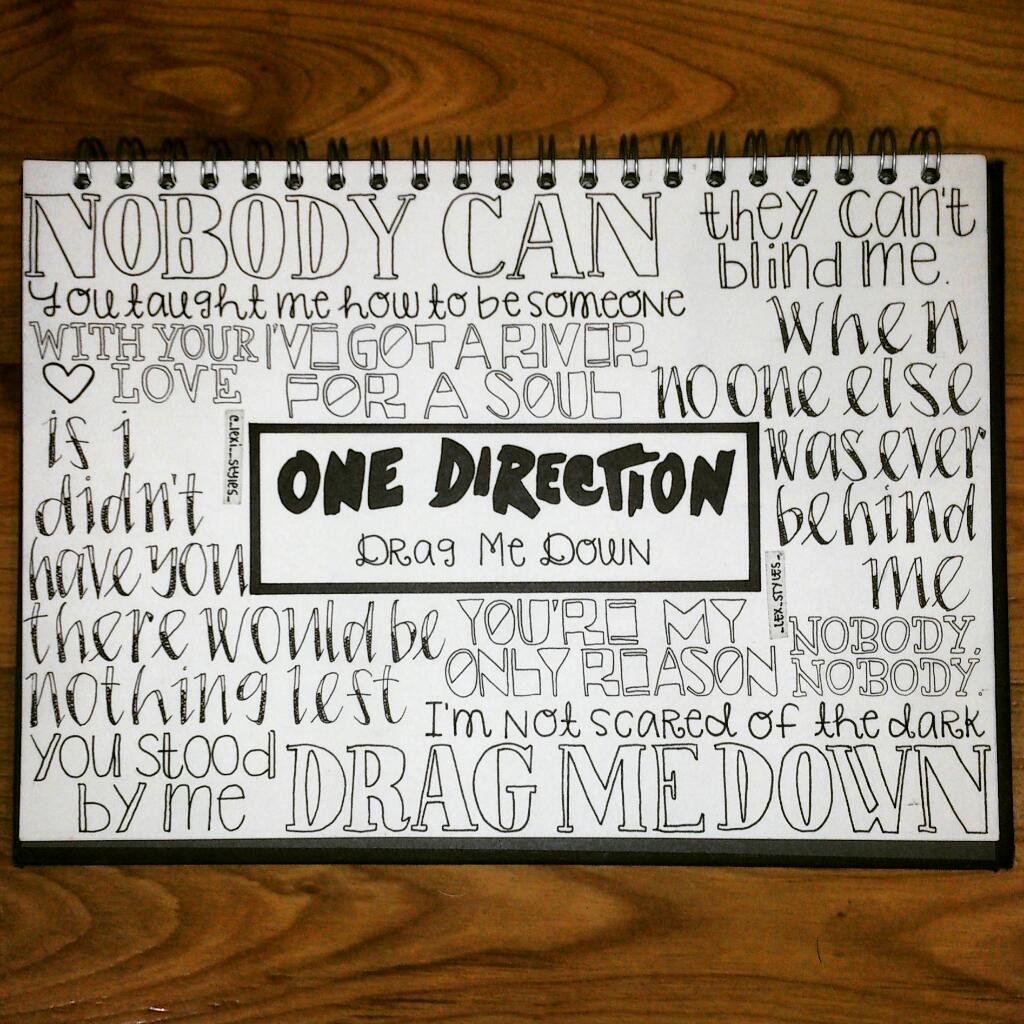 NOBODY CAN
they can't
blind me.
you taught me how to be someone
when
WITH YOUR
LOVE
I'VE GOT A RIVER
FOR A SOUL
no one else
was ever
behind
me
if i
didn't
have you
there would be
nothing left
ONE DIRECTION
Drag Me Down
YOU'RE MY
ONLY REASON
NOBODY.
NOBODY.
I'm not scared of the dark
you stood
by me
DRAG ME DOWN